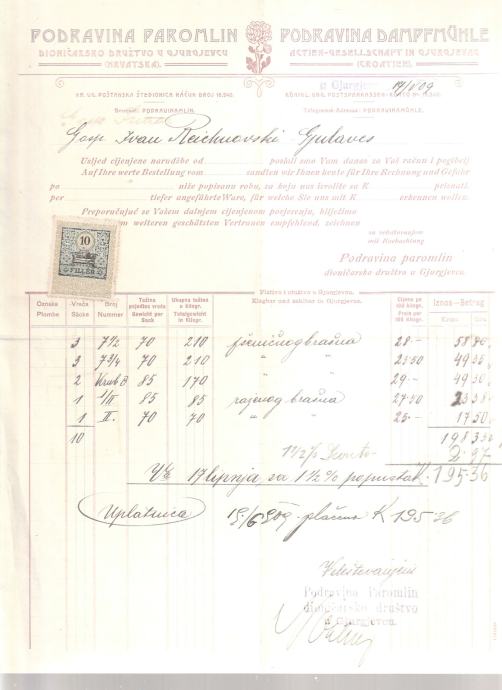 PODRAVINA PAROMLIN
DIONIČARSKO DRUŽTVO U GJURGJEVCU
(HRVATSKA).
PODRAVINA DAMPFMÜHLE
ACTIEN-GESELLSCHAFT IN GJURGJEVAC
(CROATIEN).
KR. UG. POŠTANSKA ŠTEDIONICA RAČUN BROJ 16.940.
Brzojavi: PODRAVINAMLIN.
KÖNIGL. UNG. POSTSPARKASSEN-KONTO Nr. 16.940.
Telegramm-Adresse: PODRAVINAMÜHLE.
U Gjurgjevcu 17/6 909
Gosp. Ivan Reichnovski Gjulaves
Usljed cijenjene narudžbe od poslali smo Vam danas za Vaš račun i pogibelj
Auf Ihre werte Bestellung vom sandten wir Ihnen heute für Ihre Rechnung und Gefahr
po niže popisanu robu, za koju nas izvolite sa K priznati.
per tiefer angeführte Ware, für welche Sie uns mit K erkennen wollen.
Preporučujuć se Vašem daljnjem cijenjenom povjerenju, bilježimo
weiteren geschätzten Vertrauen empfehlend, zeichnen
sa veleštovanjem
mit Hochachtung
Podravina paromlin
dioničarsko družtvo u Gjurgjevcu.
10
FILLER
Plativo i utuživo u Gjurgjevcu.
Klagbar und zahlbar in Gjurgjevac.
Oznaka Plombe
Vreća Säcke
Broj Nummer
Težina pojedine vreće Gewicht per Sack
Ukupna težina u kilogr. Totalgewicht in Kilogr.
Cijena po 100 kilogr. Preis per 100 Kilogr.
Iznos - Betrag
3 7 1/2 70 210 pšeničnog brašna 28·- 58 80
3 7 3/4 70 210 " " 23·50 49 35
2 Krub 8 85 170 29·- 49 30
1 I/II 85 85 raženog brašna 27·50 23 38
1 II. 70 70 " " 25·- 17 50
10 198 33
1 1/2 % Sconto 2·97
17 lipnja za 1 1/2 % popustak K. 195·36
Uplatnica 19/6 909 plaćeno K 195·36
Veleštovanjem
Podravina Paromlin
dioničarsko društvo
u Gjurgjevcu.